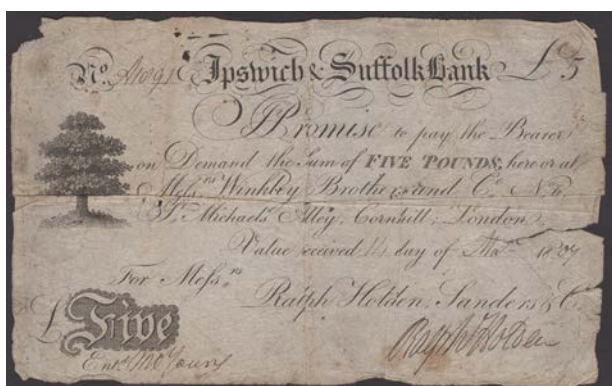 No. Ipswich & Suffolk Bank £5
I Promise to pay the Bearer
on Demand the Sum of FIVE POUNDS, here or at
Mess.rs Brothers and Co. No. 6,
St. Michael's Alley, Cornhill, London.
Value received 14 day of 1807
For Mess.rs
Ralph Holden, Sanders & Co.
£ Five
Ent.d Young Ralph Holden